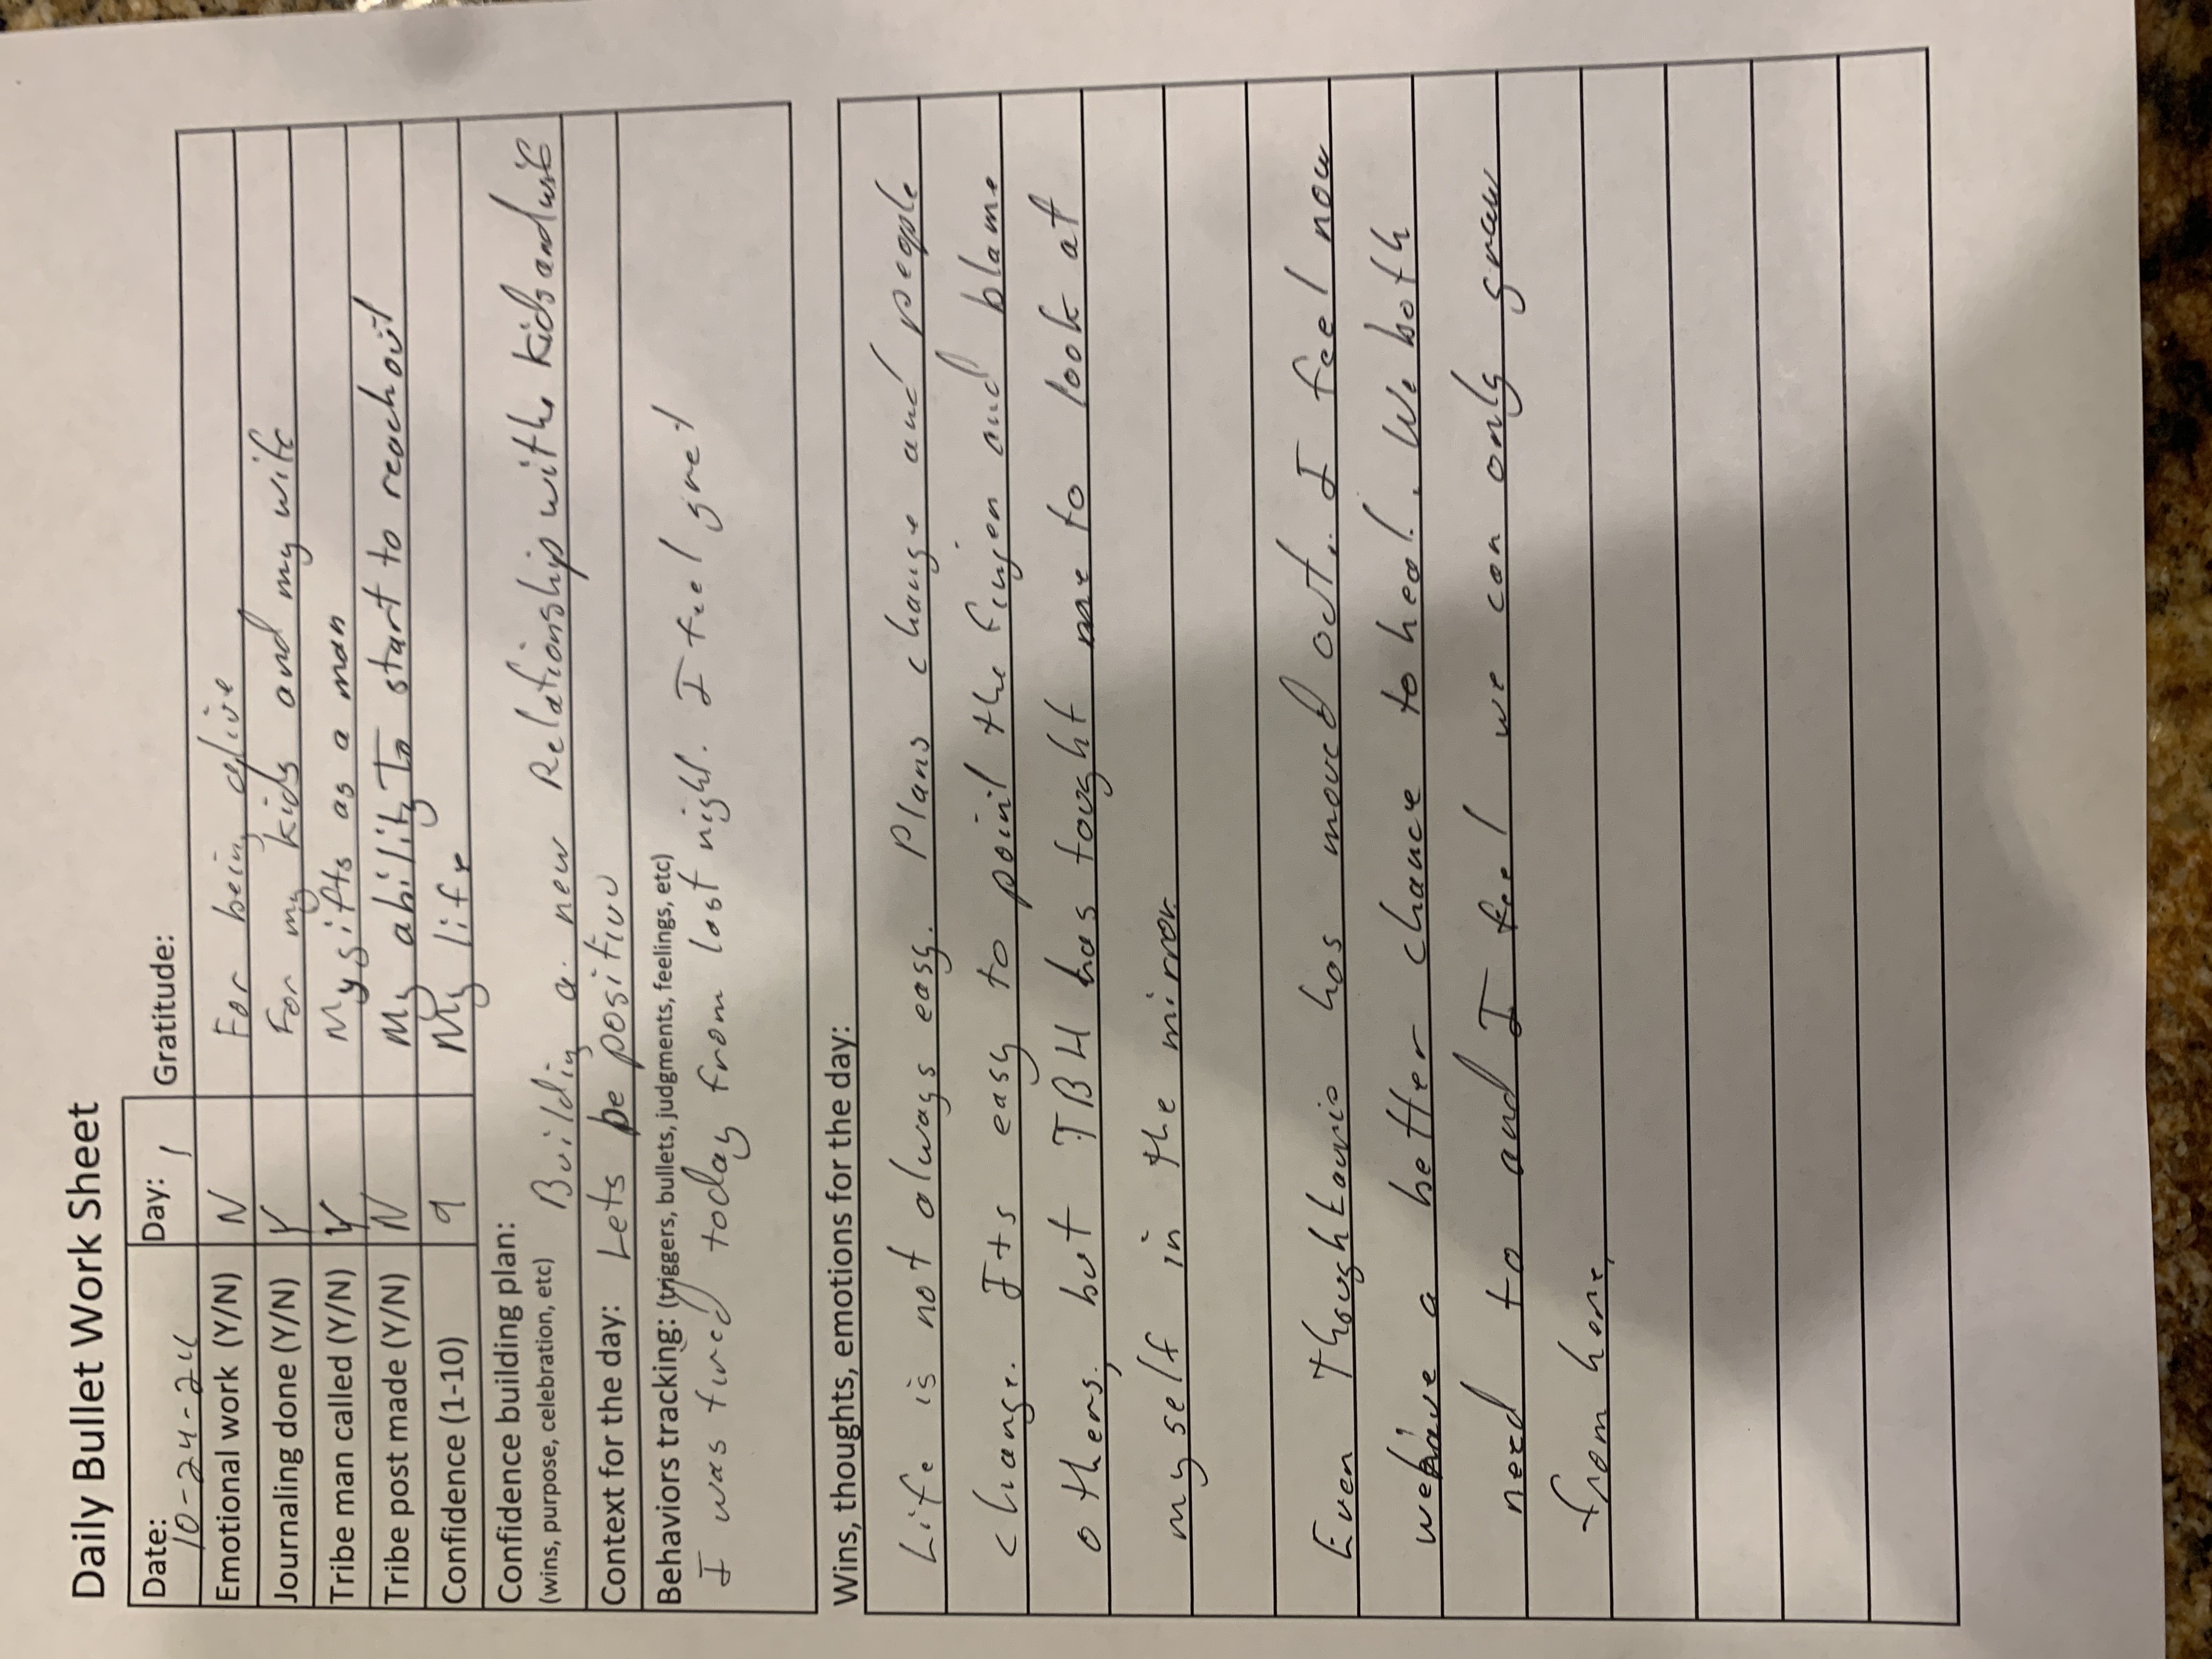 Daily Bullet Work Sheet
Date: 10-24-24 Day: 1 Gratitude:
Emotional work (Y/N) N For being alive
Journaling done (Y/N) Y For my kids and my wife
Tribe man called (Y/N) Y My gifts as a man
Tribe post made (Y/N) N My ability To start to reach out
Confidence (1-10) 9 My life
Confidence building plan:
(wins, purpose, celebration, etc) Building a new Relationship with the kids and wife
Context for the day: Lets be positive
Behaviors tracking: (triggers, bullets, judgments, feelings, etc)
I was tired today from last night. I feel gret
Wins, thoughts, emotions for the day:
Life is not always easy. Plans change and people
change. Its easy to point the finger and blame
others, but TBH has tought me to look at
myself in the mirror.
Even though has moved out. I feel now
we have a better chance to heal. We both
need to and I feel we can only grow
from here.